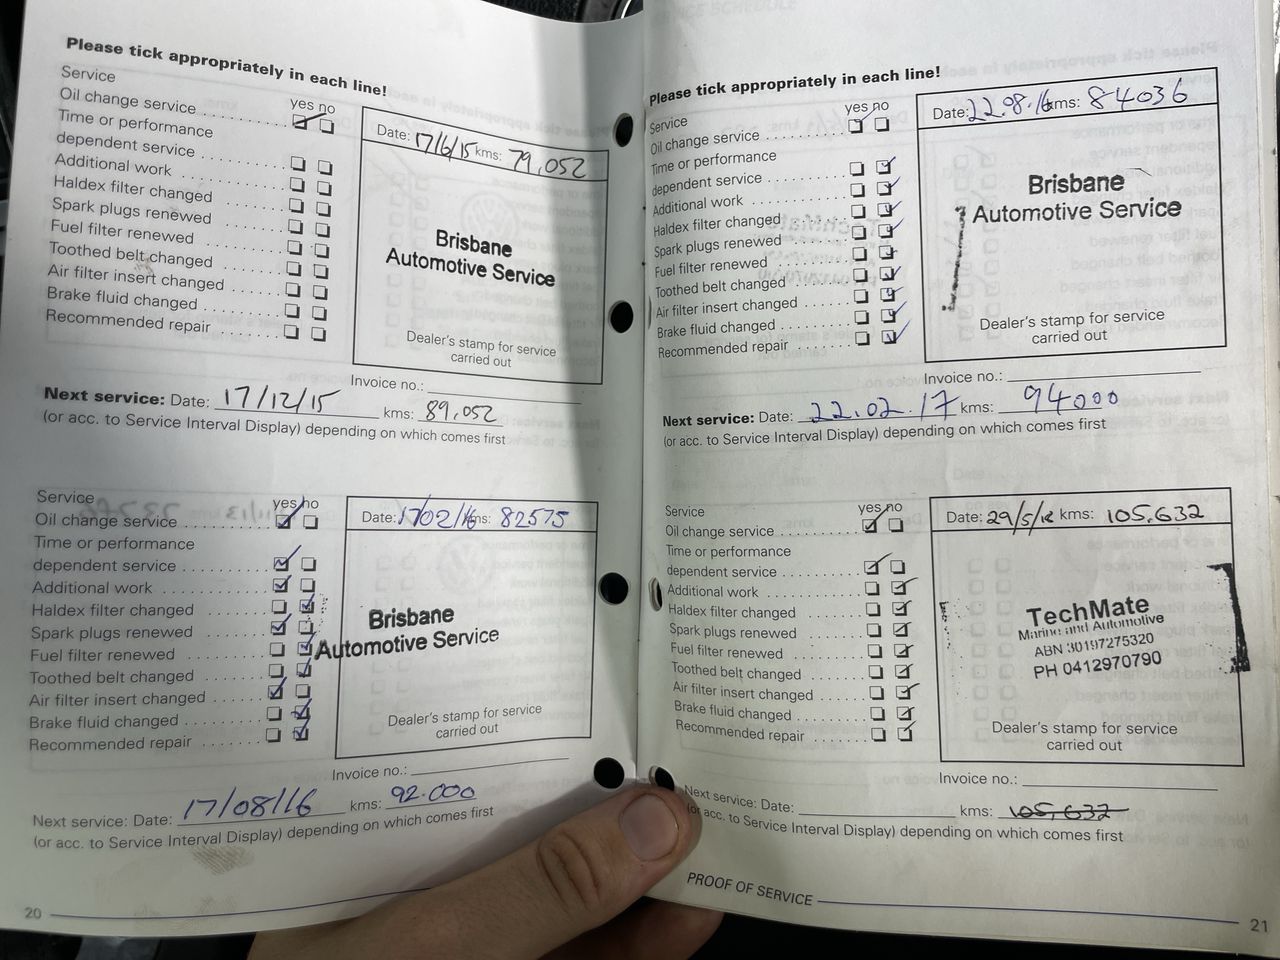 Please tick appropriately in each line!
Service
yes no
Oil change service
Time or performance
dependent service
Additional work
Haldex filter changed
Spark plugs renewed
Fuel filter renewed
Toothed belt changed
Air filter insert changed
Brake fluid changed
Recommended repair
Date: 17/6/15 kms: 79,052
Brisbane
Automotive Service
Dealer's stamp for service
carried out
Invoice no.:
Next service: Date: 17/12/15 kms: 89,052
(or acc. to Service Interval Display) depending on which comes first
Service
yes no
Oil change service
Time or performance
dependent service
Additional work
Haldex filter changed
Spark plugs renewed
Fuel filter renewed
Toothed belt changed
Air filter insert changed
Brake fluid changed
Recommended repair
Date: 17/02/16 kms: 82575
Brisbane
Automotive Service
Dealer's stamp for service
carried out
Invoice no.:
Next service: Date: 17/08/16 kms: 92.000
(or acc. to Service Interval Display) depending on which comes first
20
Please tick appropriately in each line!
Service
yes no
Oil change service
Time or performance
dependent service
Additional work
Haldex filter changed
Spark plugs renewed
Fuel filter renewed
Toothed belt changed
Air filter insert changed
Brake fluid changed
Recommended repair
Date: 22.08.16 kms: 84036
Brisbane
Automotive Service
Dealer's stamp for service
carried out
Invoice no.:
Next service: Date: 22.02.17 kms: 94000
(or acc. to Service Interval Display) depending on which comes first
Service
yes no
Oil change service
Time or performance
dependent service
Additional work
Haldex filter changed
Spark plugs renewed
Fuel filter renewed
Toothed belt changed
Air filter insert changed
Brake fluid changed
Recommended repair
Date: 29/5/18 kms: 105,632
TechMate
Marine and Automotive
ABN 30197275320
PH 0412970790
Dealer's stamp for service
carried out
Invoice no.:
Next service: Date: kms: 105,632
(or acc. to Service Interval Display) depending on which comes first
PROOF OF SERVICE
21